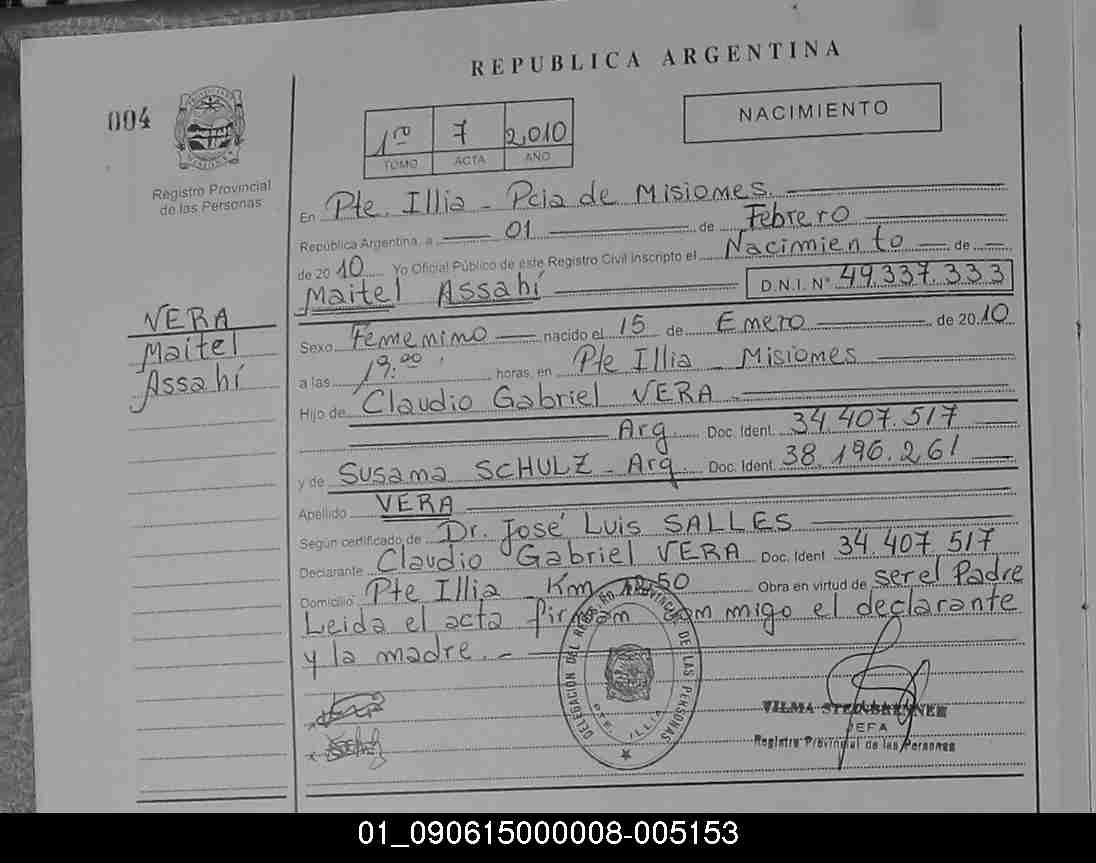 REPUBLICA ARGENTINA
004
1ro 7 2,010
TOMO ACTA AÑO
NACIMIENTO
Registro Provincial
de las Personas
En Pte. Illia - Pcia de Misiones.
República Argentina, a 01 de Febrero
de 2010 Yo Oficial Público de este Registro Civil inscripto el Nacimiento de
Maitel Assahí D.N.I. Nº 49.337.333
VERA
Maitel
Assahí
Sexo Femenino nacido el 15 de Enero de 2010
a las 19:00 horas, en Pte Illia - Misiones
Hijo de Claudio Gabriel VERA -
Arg. Doc. Ident. 34.407.517
y de Susana SCHULZ - Arg Doc. Ident. 38.196.261
Apellido VERA
Según certificado de Dr. José Luis SALLES
Declarante Claudio Gabriel VERA Doc. Ident 34.407.517
Domicilio Pte Illia - Km Obra en virtud de ser el Padre
Leida el acta firman conmigo el declarante
y la madre. -
DELEGACION DEL REGISTRO PROVINCIAL DE LAS PERSONAS
PTE. ILLIA
VILMA STEINBRENNER
JEFA
Registro Provincial de las Personas
01_090615000008-005153